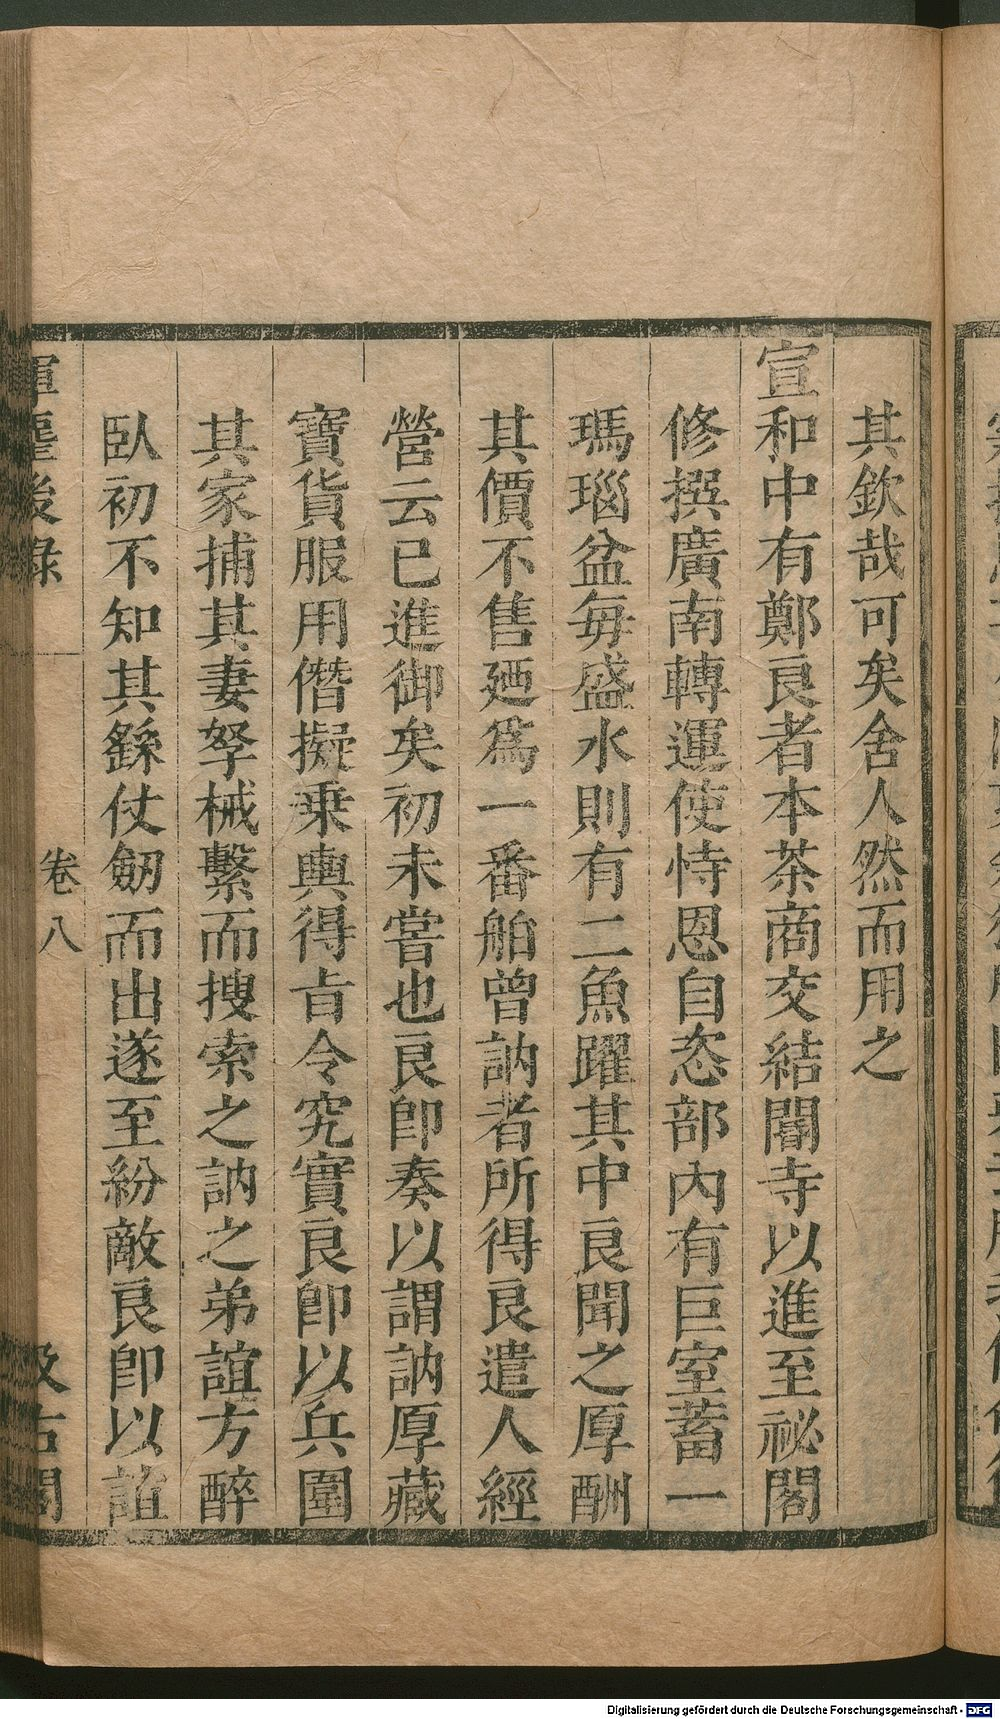 其欽哉可矣舍人然而用之
宣和中有鄭良者本茶商交結閹寺以進至祕閣
修撰廣南轉運使恃恩自恣部內有巨室蓄一
瑪瑙盆每盛水則有二魚躍其中良聞之厚酬
其價不售廼爲一番舶曾訥者所得良遣人經
營云已進御矣初未嘗也良卽奏以謂訥厚藏
寶貨服用僭擬乗輿得㫖令究實良卽以兵圍
其家捕其妻孥械繫而搜索之訥之弟誼方醉
臥初不知其繇仗劒而出遂至紛敵良卽以誼
揮麈後錄
卷八
汲古閣
Digitalisierung gefördert durch die Deutsche Forschungsgemeinschaft - DFG